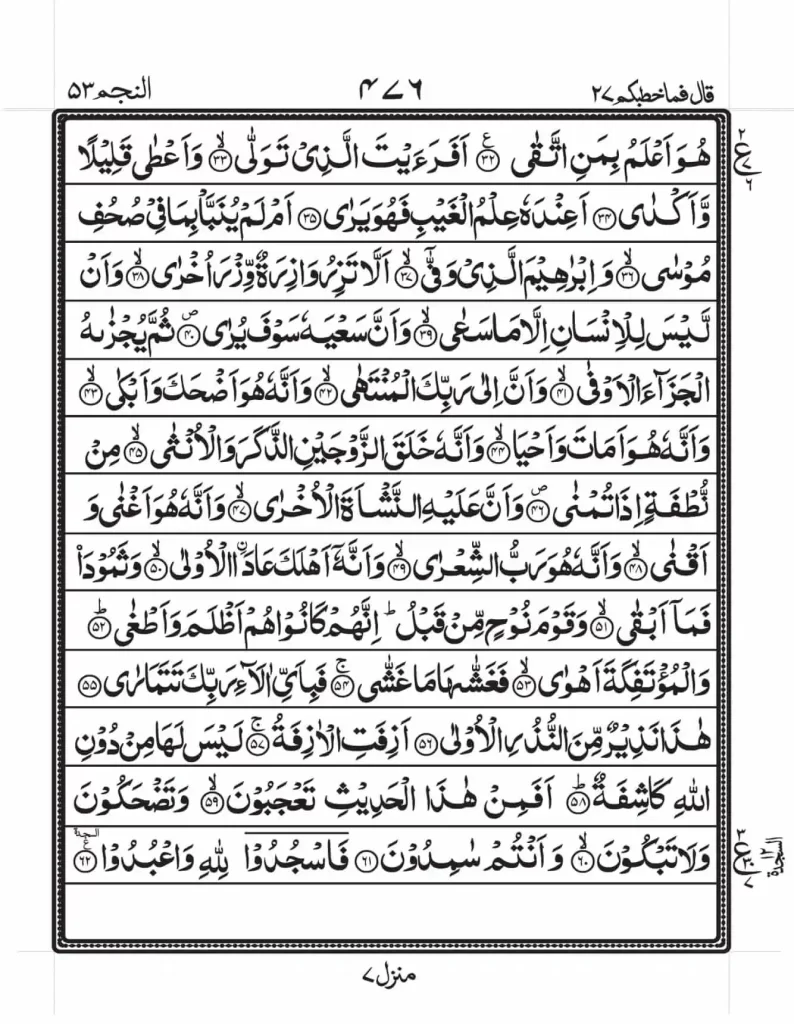 قال فماخطبكم ٢٧ ٤٧٦ النجم ٥٣
هُوَ اَعۡلَمُ بِمَنِ اتَّقٰى ﴿٣٢﴾ اَفَرَءَيۡتَ الَّذِىۡ تَوَلّٰى ﴿٣٣﴾ وَاَعۡطٰى قَلِيۡلًا
وَّاَكۡدٰى ﴿٣٤﴾ اَعِنۡدَهٗ عِلۡمُ الۡغَيۡبِ فَهُوَ يَرٰى ﴿٣٥﴾ اَمۡ لَمۡ يُنَبَّاۡ بِمَا فِىۡ صُحُفِ
مُوۡسٰى ﴿٣٦﴾ وَاِبۡرٰهِيۡمَ الَّذِىۡ وَفّٰىٓ ﴿٣٧﴾ اَلَّا تَزِرُ وَازِرَةٌ وِّزۡرَ اُخۡرٰى ﴿٣٨﴾ وَاَنۡ
لَّيۡسَ لِلۡاِنۡسَانِ اِلَّا مَا سَعٰى ﴿٣٩﴾ وَاَنَّ سَعۡيَهٗ سَوۡفَ يُرٰى ﴿٤٠﴾ ثُمَّ يُجۡزٰٮهُ
الۡجَزَآءَ الۡاَوۡفٰى ﴿٤١﴾ وَاَنَّ اِلٰى رَبِّكَ الۡمُنۡتَهٰى ﴿٤٢﴾ وَاَنَّهٗ هُوَ اَضۡحَكَ وَاَبۡكٰى ﴿٤٣﴾
وَاَنَّهٗ هُوَ اَمَاتَ وَاَحۡيَا ﴿٤٤﴾ وَاَنَّهٗ خَلَقَ الزَّوۡجَيۡنِ الذَّكَرَ وَالۡاُنۡثٰى ﴿٤٥﴾ مِنۡ
نُّطۡفَةٍ اِذَا تُمۡنٰى ﴿٤٦﴾ وَاَنَّ عَلَيۡهِ النَّشۡاَةَ الۡاُخۡرٰى ﴿٤٧﴾ وَاَنَّهٗ هُوَ اَغۡنٰى وَ
اَقۡنٰى ﴿٤٨﴾ وَاَنَّهٗ هُوَ رَبُّ الشِّعۡرٰى ﴿٤٩﴾ وَاَنَّهٗۤ اَهۡلَكَ عَادَاۨ الۡاُوۡلٰى ﴿٥٠﴾ وَثَمُوۡدَا۟
فَمَاۤ اَبۡقٰى ﴿٥١﴾ وَقَوۡمَ نُوۡحٍ مِّنۡ قَبۡلُ ؕ اِنَّهُمۡ كَانُوۡا هُمۡ اَظۡلَمَ وَاَطۡغٰى ﴿٥٢﴾
وَالۡمُؤۡتَفِكَةَ اَهۡوٰى ﴿٥٣﴾ فَغَشّٰٮهَا مَا غَشّٰى ﴿٥٤﴾ فَبِاَىِّ اٰلَاۤءِ رَبِّكَ تَتَمَارٰى ﴿٥٥﴾
هٰذَا نَذِيۡرٌ مِّنَ النُّذُرِ الۡاُوۡلٰى ﴿٥٦﴾ اَزِفَتِ الۡاٰزِفَةُ ﴿٥٧﴾ لَيۡسَ لَهَا مِنۡ دُوۡنِ
اللّٰهِ كَاشِفَةٌ ﴿٥٨﴾ اَفَمِنۡ هٰذَا الۡحَدِيۡثِ تَعۡجَبُوۡنَ ﴿٥٩﴾ وَتَضۡحَكُوۡنَ
وَلَا تَبۡكُوۡنَ ﴿٦٠﴾ وَاَنۡتُمۡ سٰمِدُوۡنَ ﴿٦١﴾ فَاسۡجُدُوۡا لِلّٰهِ وَاعۡبُدُوۡا ﴿٦٢﴾
السجدة ١٢
منزل ٧